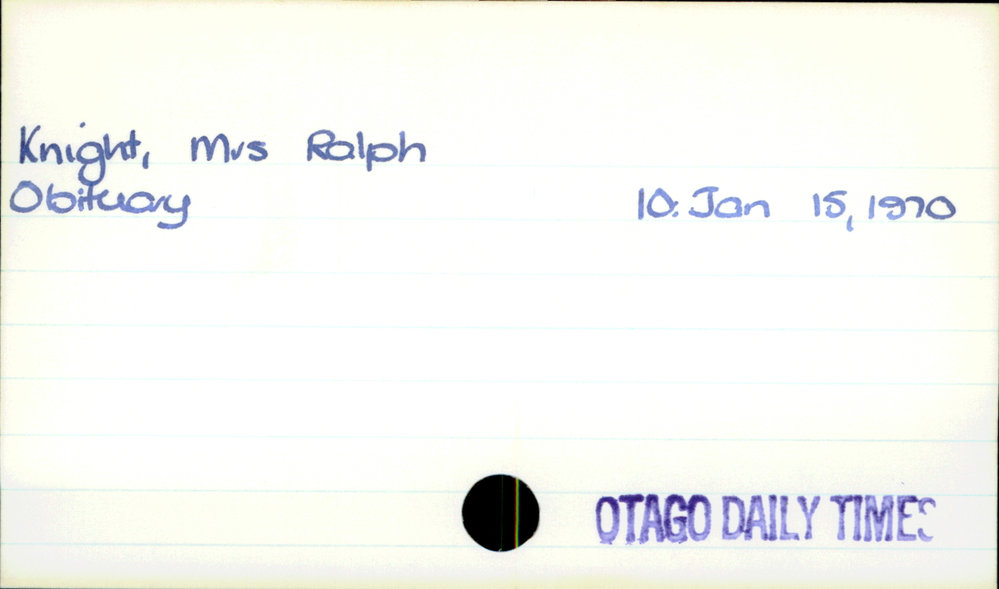 Knight, Mrs Ralph
Obituary 10. Jan 15, 1970
OTAGO DAILY TIMES